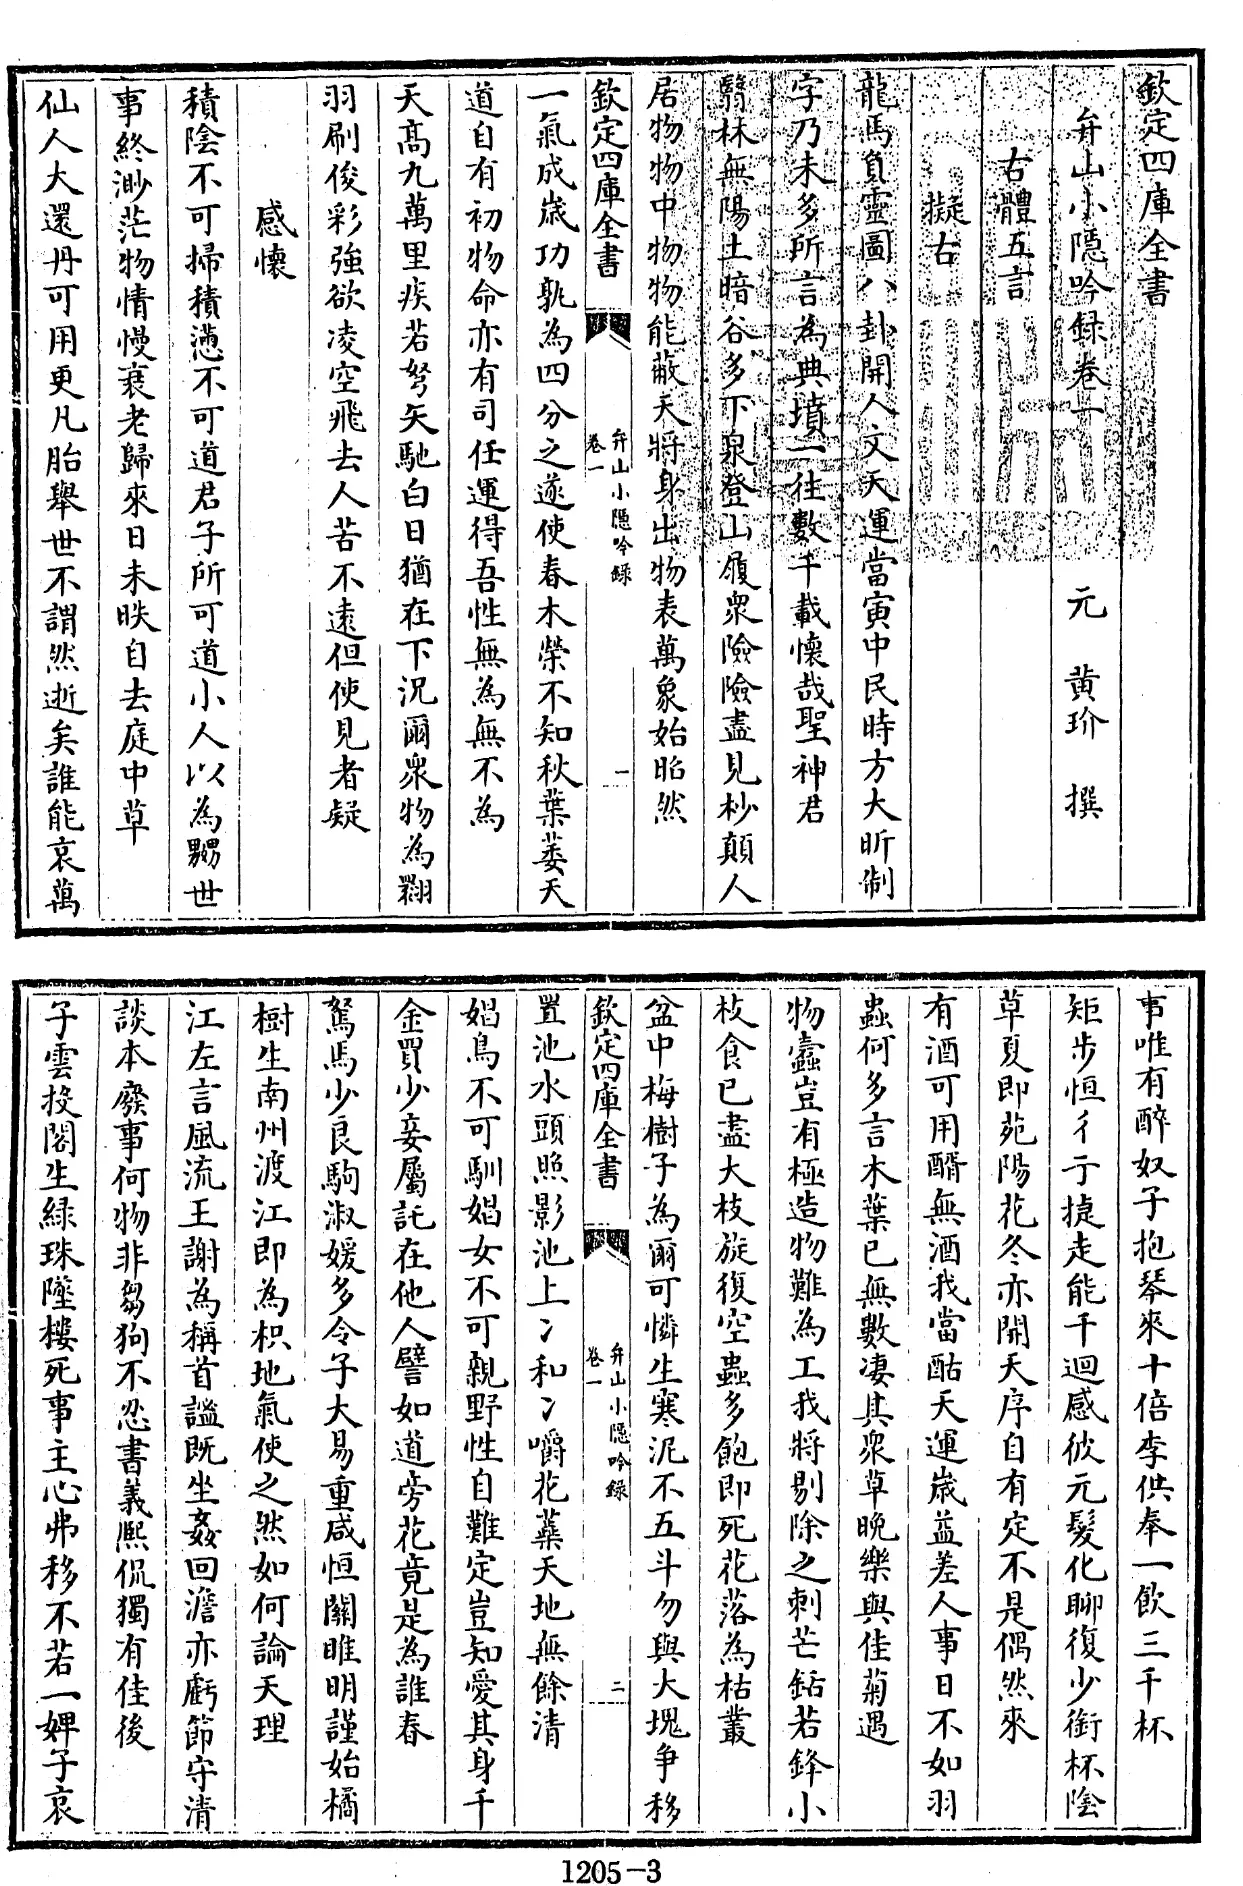 欽定四庫全書
弁山小隱吟録卷一
元 黄玠 撰
古體五言
擬古
龍馬負靈圖八卦開人文天運當寅中民時方大昕制
字乃未多所言為典墳一往數千載懷哉聖神君
翳林無陽土暗谷多下泉登山履衆險險盡見杪顛人
居物物中物物能蔽天將身出物表萬象始昭然
欽定四庫全書
弁山小隱吟録
卷一
一
一氣成嵗功孰為四分之遂使春木榮不知秋葉萎天
道自有初物命亦有司任運得吾性無為無不為
天髙九萬里疾若弩矢馳白日猶在下況爾衆物為翾
羽刷俊彩強欲凌空飛去人苦不逺但使見者疑
感懷
積陰不可掃積懣不可道君子所可道小人以為嬲世
事終渺茫物情慢衰老歸來日未昳自去庭中草
仙人大還丹可用更凡胎舉世不謂然逝矣誰能哀萬
事唯有醉奴子抱琴來十倍李供奉一飲三千杯
矩步恒彳亍捷走能千迴感彼元髮化聊復少銜杯陰
草夏即苑陽花冬亦開天序自有定不是偶然來
有酒可用醑無酒我當酤天運嵗益差人事日不如羽
蟲何多言木葉已無數凄其衆草晩樂與佳菊遇
物蠧豈有極造物難為工我將剔除之刺芒銛若鋒小
枝食已盡大枝旋復空蟲多飽即死花落為枯叢
盆中梅樹子為爾可憐生寒泥不五斗勿與大塊争移
欽定四庫全書
弁山小隱吟録
卷一
二
置池水頭照影池上冫和冫嚼花蘂天地無餘清
娼鳥不可馴娼女不可親野性自難定豈知愛其身千
金買少妾屬託在他人譬如道旁花竟是為誰春
駑馬少良駒淑媛多令子大易重咸恒關雎明謹始橘
樹生南州渡江即為枳地氣使之然如何論天理
江左言風流王謝為稱首謐既坐姦回澹亦虧節守清
談本廢事何物非芻狗不忍書義熙侃獨有佳後
子雲投閣生緑珠墜樓死事主心弗移不若一婢子哀
1205-3